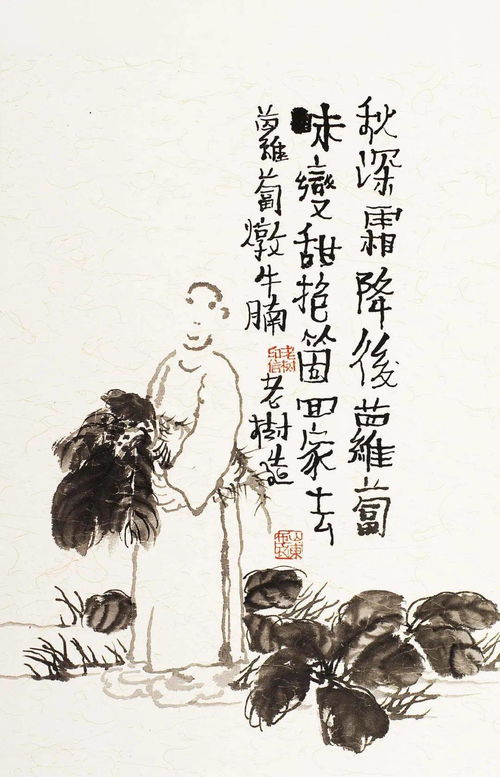 秋深霜降後蘿蔔
味變甜抱箇回家去
蘿蔔燉牛腩
老樹造